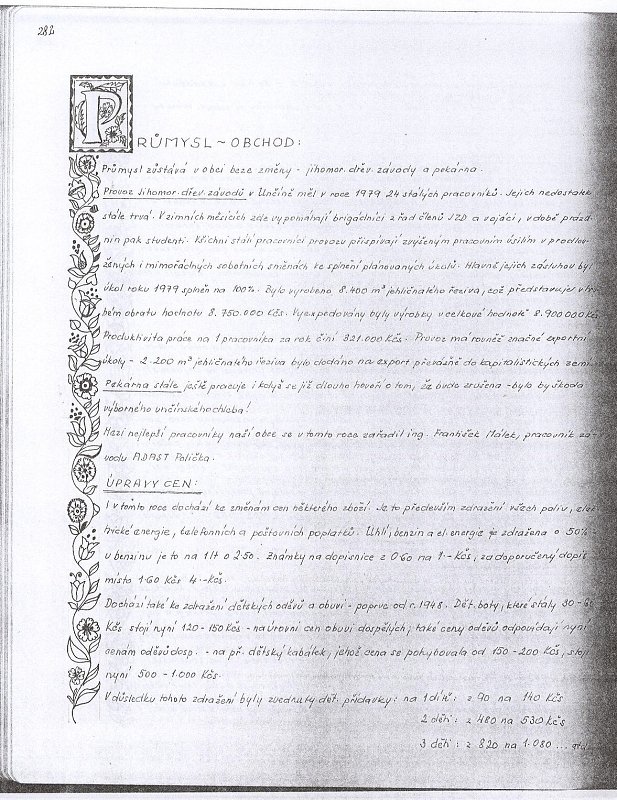 282
PRŮMYSL ~ OBCHOD:
Průmysl zůstává v obci beze změny - jihomor. dřev. závody a pekárna.
Provoz Jihomor. dřev. závodů v Unčíně měl v roce 1979 24 stálých pracovníků. Jejich nedostatek
stále trvá. V zimních měsících zde vypomáhají brigádníci z řad členů JZD a vojáci, v době prázd-
nin pak studenti. Všichni stálí pracovníci provozu přispívají zvýšeným pracovním úsilím v prodlou-
žených i mimořádných sobotních směnách ke splnění plánovaných úkolů. Hlavně jejich zásluhou byl
úkol roku 1979 splněn na 100%. Bylo vyrobeno 8.400 m³ jehličnatého řeziva, což představuje v
hém obratu hodnotu 8.750.000 Kčs. Vyexpedovány byly výrobky v celkové hodnotě 8.900.000 Kčs
Produktivita práce na 1 pracovníka za rok činí 321.000 Kčs. Provoz má rovněž značné exportní
úkoly - 2.200 m³ jehličnatého řeziva bylo dodáno na export převážně do kapitalistických zemí.
Pekárna stále ještě pracuje i když se již dlouho hovoří o tom, že bude zrušena - bylo by škoda
výborného unčínského chleba!
Mezi nejlepší pracovníky naší obce se v tomto roce zařadil ing. František Málek, pracovník zá-
vodu ADAST Polička.
ÚPRAVY CEN:
I v tomto roce dochází ke změnám cen některého zboží. Je to především zdražení všech paliv, elek
trické energie, telefonních a poštovních poplatků. Uhlí, benzin a el. energie je zdražena o 50%
u benzinu je to na 1 lt o 2.50. Známky na dopisnice z 0.60 na 1.- Kčs, za doporučený dopis
místo 1.60 Kčs 4.- Kčs.
Dochází také ke zdražení dětských oděvů a obuvi - poprvé od r. 1948. Dět. boty, které stály 30-60
Kčs stojí nyní 120 - 150 Kčs - na úrovni cen obuvi dospělých, také ceny oděvů odpovídají nyní
cenám oděvů dosp. - na př. dětský kabátek, jehož cena se pohybovala od 150 - 200 Kčs, stojí
nyní 500 - 1.000 Kčs.
V důsledku tohoto zdražení byly zvednuty dět. přídavky: na 1 dítě: z 90 na 140 Kčs
2 děti: z 480 na 530 Kčs
3 děti: z 820 na 1.080 ...